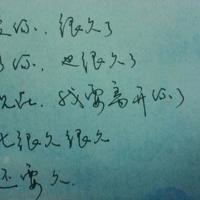 你，很久了
你，也很久了
，我要离开你了
很久很久
还要久.